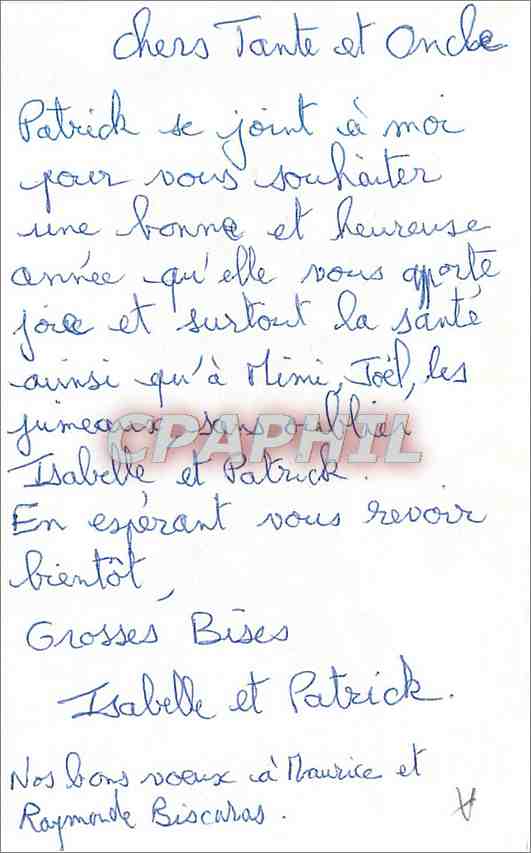 Chers Tante et Oncle
Patrick se joint à moi
pour vous souhaiter
une bonne et heureuse
année qu'elle vous apporte
joie et surtout la santé
ainsi qu'à Mimi, Joël, les
jumeaux, sans oublier
CPAPHIL
Isabelle et Patrick.
En espérant vous revoir
bientôt,
Grosses Bises
Isabelle et Patrick.
Nos bons voeux à Maurice et
Raymonde Biscaras.